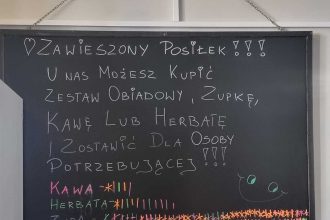 ♡ZAWIESZONY POSIŁEK!!!
U NAS MOŻESZ KUPIĆ
ZESTAW OBIADOWY, ZUPKĘ,
KAWĘ LUB HERBATĘ
I ZOSTAWIĆ DLA OSOBY
POTRZEBUJĄCEJ!!!
KAWA-
HERBATA-